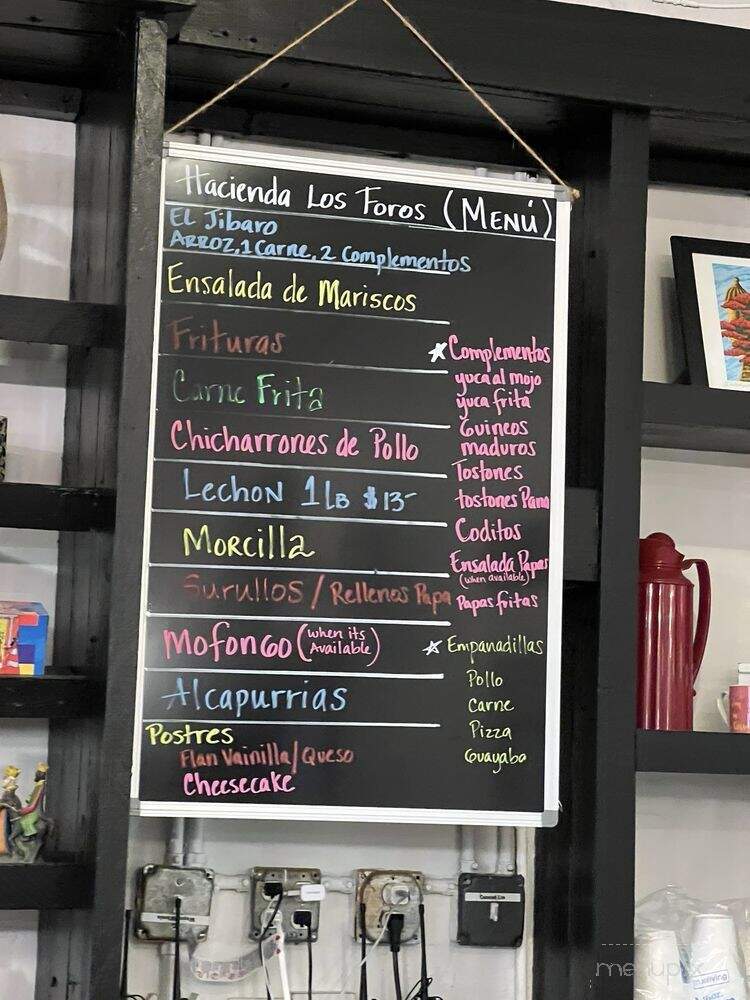 Hacienda Los Foros (Menú)
El Jibaro
Arroz, 1 Carne, 2 Complementos
Ensalada de Mariscos
Frituras
Carne Frita
Chicharrones de Pollo
Lechon 1 Lb $13-
Morcilla
Surullos / Rellenos Papa
Mofongo (when its Available)
Alcapurrias
Postres
Flan Vainilla/Queso
Cheesecake
Complementos
yuca al mojo
yuca frita
Guineos
maduros
Tostones
tostones Pana
Coditos
Ensalada Papas
(when available)
Papas fritas
Empanadillas
Pollo
Carne
Pizza
Guayaba
menupix